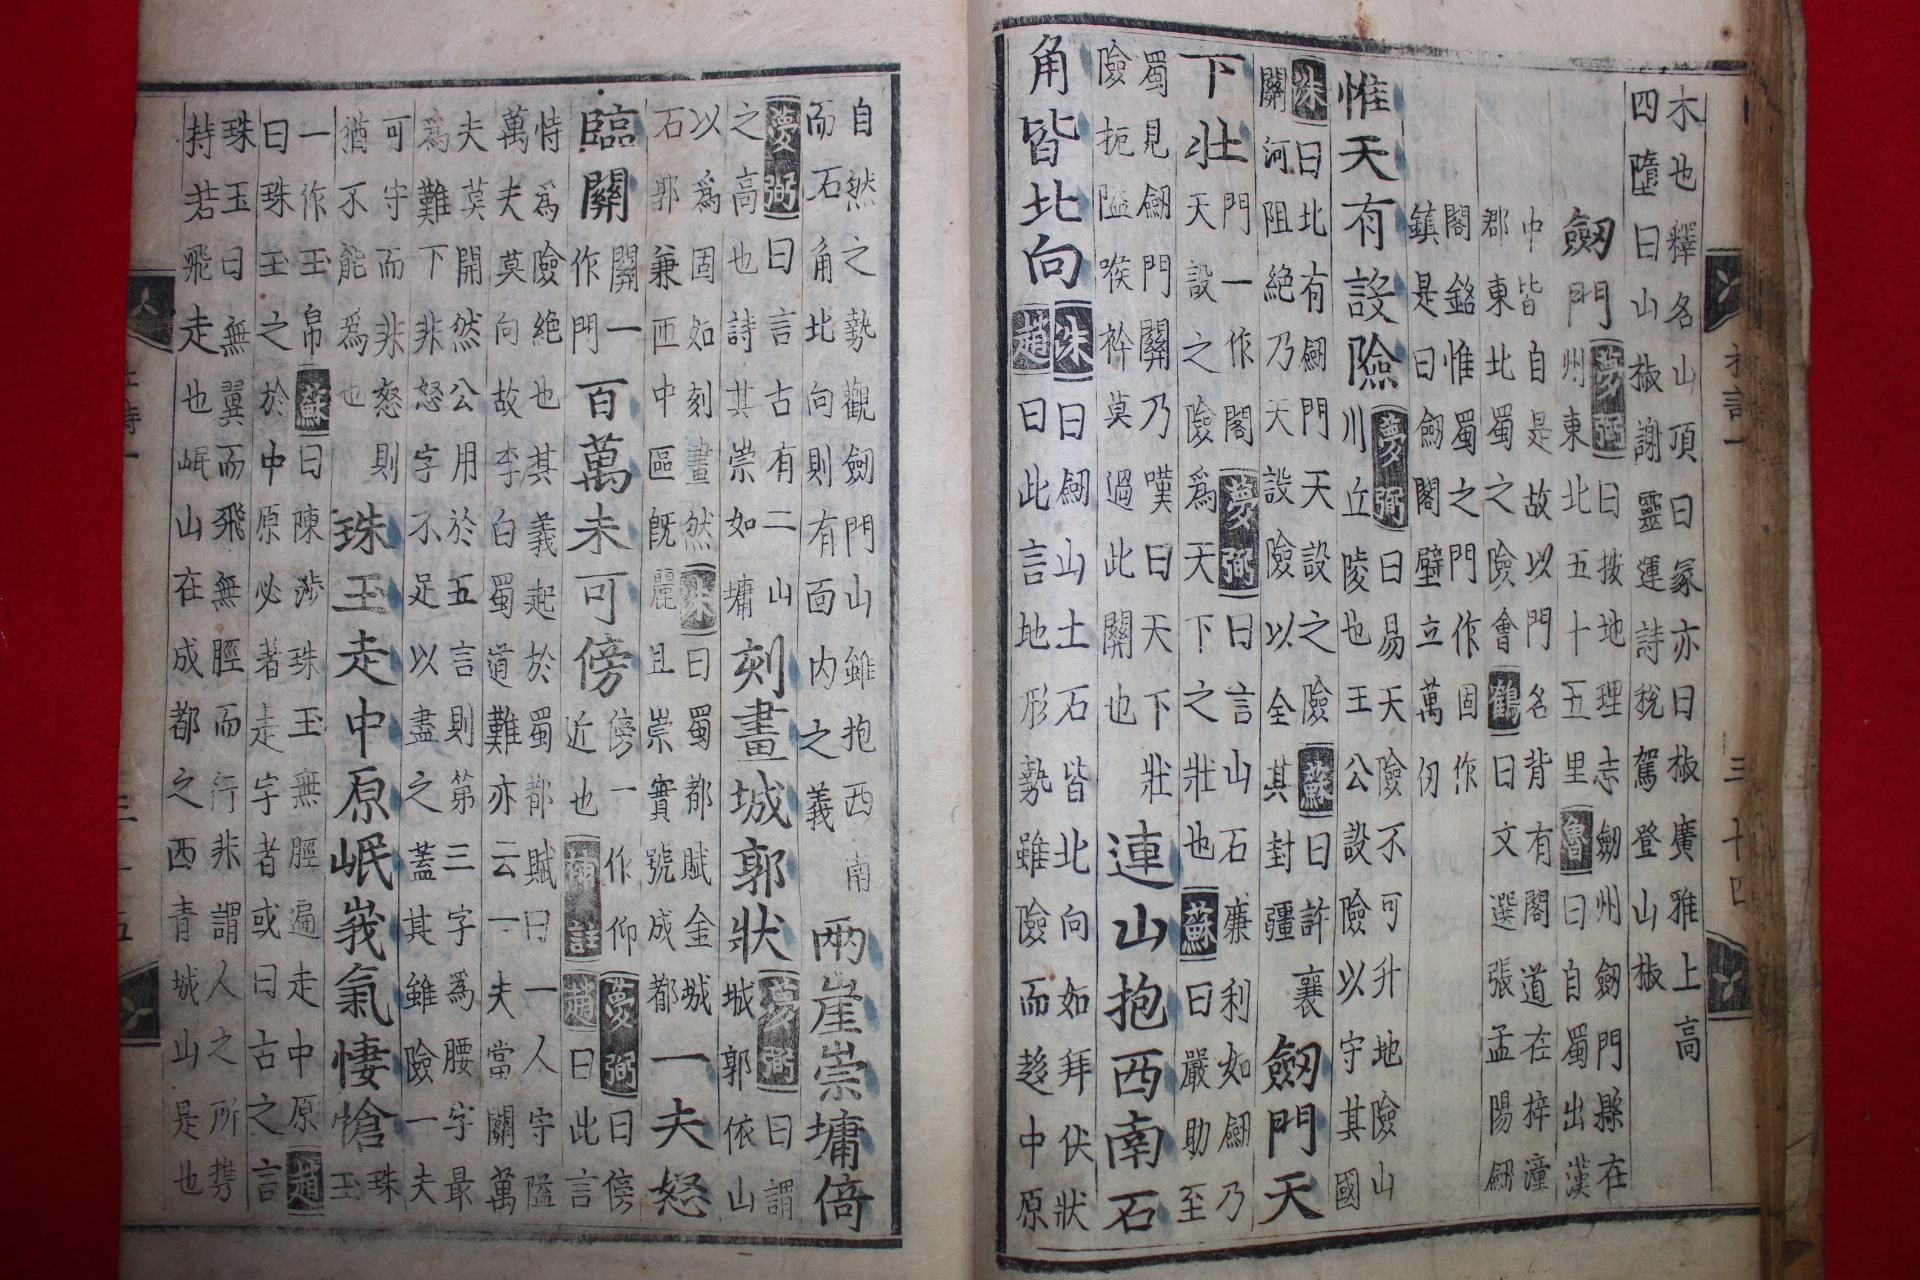 木也釋名山頂曰冡亦曰椒廣雅上高
四墮曰山椒謝靈運詩稅駕登山椒
劒門
夢弼曰按地理志劒州劒門縣在
州東北五十五里魯曰自蜀出漢
中皆自是故以門名背有閣道在梓潼
郡東北蜀之險會鶴曰文選張孟陽劒
閣銘惟蜀之門作固作
鎮是曰劒閣壁立萬仞
惟天有設險
夢弼曰易天險不可升地險山
川丘陵也王公設險以守其國
洙曰北有劒門天設之險蘇曰許襄
關河阻絶乃天設險以全其封疆
劒門天
下壯
門一作閣夢弼曰言山石廉利如劒乃
天設之險爲天下之壯也蘇曰嚴助至
蜀見劒門關乃嘆曰天下壯
險扼隘喉衿莫過此關也
連山抱西南石
角皆北向
洙曰劒山土石皆北向如拜伏狀
趙曰此言地形勢雖險而趍中原
三十四
自然之勢觀劒門山雖抱西南
而石角北向則有面内之義
兩崖崇墉倚
夢弼曰言古有二山
之高也詩其崇如墉
刻畫城郭狀
夢弼曰謂
城郭依山
以爲固如刻畫然洙曰蜀都賦金城
石郭兼匝中區旣麗且崇實號成都
一夫怒
臨關
關一
作門
百萬未可傍
傍一作仰夢弼曰傍
近也補註趙曰此言
恃爲險絶也其義起於蜀都賦曰一人守隘
萬夫莫向故李白蜀道難亦云一夫當關萬
夫莫開然公用於五言則第三字爲腰字最
爲難下非怒字不足以盡之蓋其雖險一夫
可守而非怒則
猶不能爲也
珠玉走中原岷峩氣悽愴
珠
玉
一作玉帛蘇曰陳渉珠玉無脛遍走中原趙
曰珠玉之於中原必著走字者或曰古之言
珠玉曰無翼而飛無脛而行非謂人之所携
持若飛走也岷山在成都之西青城山是也